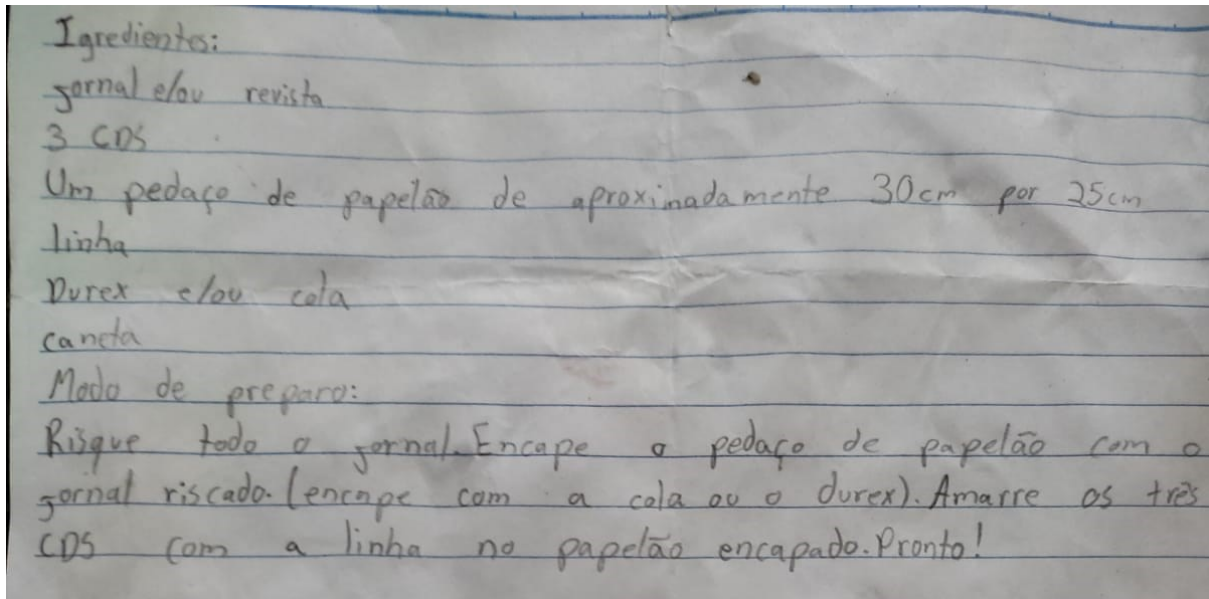 Igredientes:
jornal e/ou revista
3 CDS
Um pedaço de papelão de aproximadamente 30cm por 25cm
linha
Durex e/ou cola
caneta
Modo de preparo:
Risque todo o jornal. Encape o pedaço de papelão com o
jornal riscado. (encape com a cola ou o durex). Amarre os três
CDS com a linha no papelão encapado. Pronto!